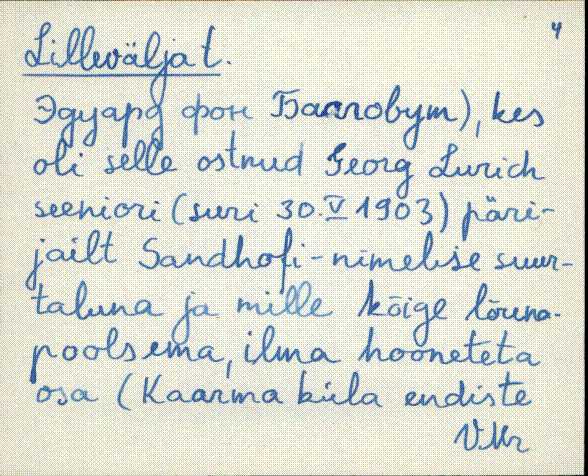 4
Lillevälja t.
Эдуард фон Баллобут), kes
oli selle ostnud Georg Lurich
seeniori (suri 30.V 1903) päri-
jailt Sandhofi-nimelise suur-
taluna ja mille kõige lõuna-
poolsema, ilma hooneteta
osa (Kaarma küla endiste
V.Kr